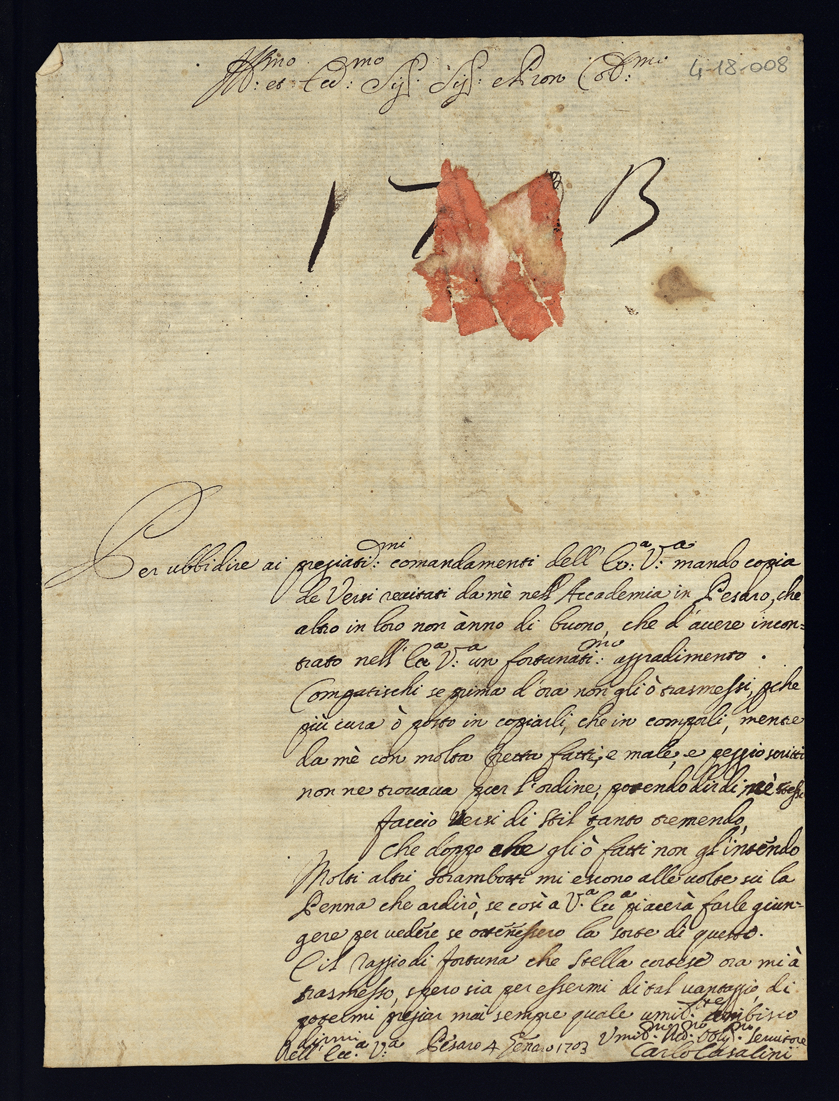 Ill:mo et Ecc:mo Sig: Sig: e Pron Col:mo
4-18-008
1 7 B
Per ubbidire ai pregiati:mi comandamenti dell' Ec:a V:a mando copia
de Versi recitati da mè nell'Accademia in Pesaro, che
altro in loro non ànno di buono, che d'avere incon=
trato nell' Ecc.a V:a un fortunati:mo aggradimento.
Compatischi se prima d'ora non gli ò trasmessi, pche
più cura ò posto in copiarli, che in comporli, mentre
da mè con molta fretta fatti, e male, e peggio scritti
non ne trovava pur l'ordine, potendo dir di mè stesso
faccio Versi di stil tanto tremendo,
Che doppo che gli ò fatti non gl'intendo
Molti altri strambotti mi escono alle volte sù la
Penna che ardirò, se così a V.a Ecc.a piacerà farle giun=
gere per vedere se ottenessero la sorte di questi.
E il raggio di fortuna che Stella cortese ora mi à
trasmesso, spero sia per essermi di tal vantaggio, di
potermi pregiar mai sempre quale umil:te
dirmi
Dell' Ecc.a V:a Pesaro 4 Genaro 1703 Umil:mo Obblig:mo Servitore
Carlo Casalini